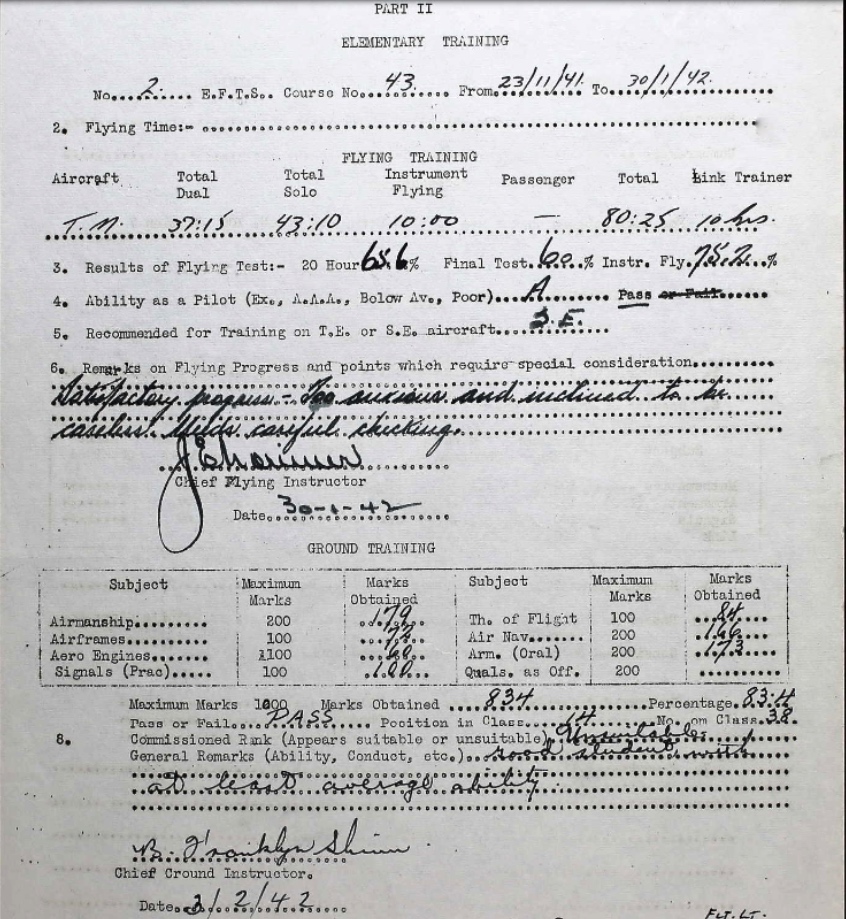 PART II
ELEMENTARY TRAINING
No. 2 E.F.T.S. Course No. 43 From 23/11/41 To 30/1/42.
2. Flying Time:-
FLYING TRAINING
Aircraft Total Dual Total Solo Instrument Flying Passenger Total Link Trainer
T.M. 37:15 43:10 10:00 — 80:25 10 hrs.
3. Results of Flying Test:- 20 Hour % Final Test 60 % Instr. Fly. 75.2 %
4. Ability as a Pilot (Ex., A.A.A., Below Av., Poor) A Pass or Fail
5. Recommended for Training on T.E. or S.E. aircraft S.E.
6. Remarks on Flying Progress and points which require special consideration
Satisfactory progress - Too anxious and inclined to be
careless. Needs careful checking.
Chief Flying Instructor
Date 30-1-42
GROUND TRAINING
Subject Maximum Marks Marks Obtained Subject Maximum Marks Marks Obtained
Airmanship 200 179 Th. of Flight 100 84
Airframes 100 72 Air Nav. 200 166
Aero Engines 100 60 Arm. (Oral) 200 173
Signals (Prac) 100 100 Quals. as Off. 200
Maximum Marks 1000 Marks Obtained 834 Percentage 83.4
Pass or Fail PASS Position in Class 14 No. on Class 38
8. Commissioned Rank (Appears suitable or unsuitable) Unsuitable
General Remarks (Ability, Conduct, etc.) Good student with
at least average ability.
B. Franklyn Shinn
Chief Ground Instructor.
Date 3/2/42
FLT. LT.